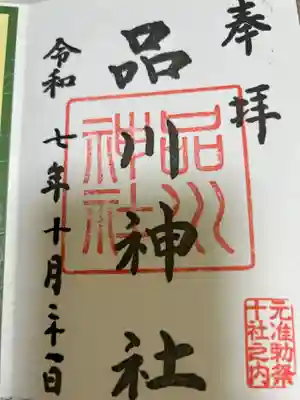 奉拝
品川神社
品川神社
令和七年十月二十一日
元准勅祭
十社之内